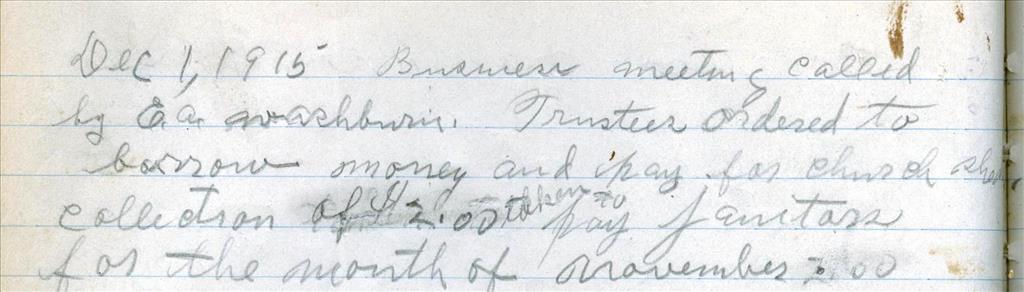 Dec 1, 1915 Business meeting called
by E.a. washburn. Trustees ordered to
borrow money and pay for church
collection of $2.00 taken to pay janitors
for the month of november 2.00